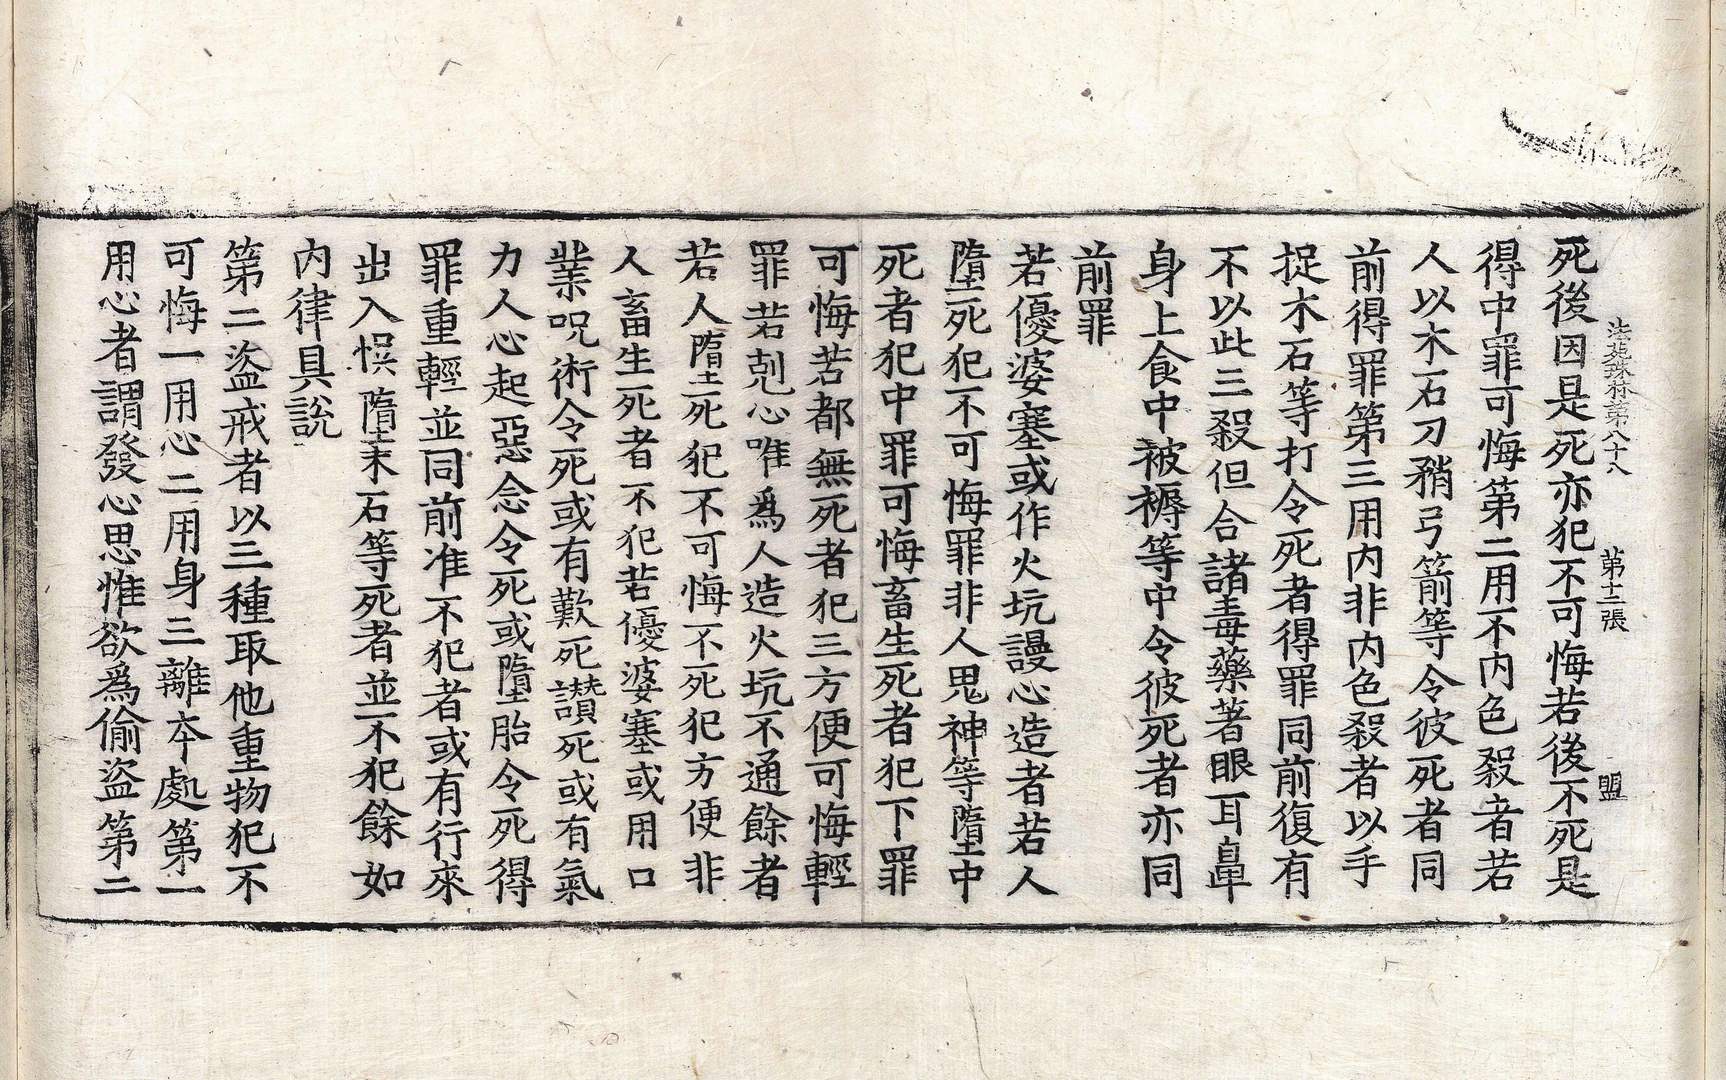 法苑珠林第八十八　第十二張　盟
死後因是死亦犯不可悔若後不死是
得中罪可悔第二用不内色殺者若
人以木石刀矟弓箭等令彼死者同
前得罪第三用内非内色殺者以手
捉木石等打令死者得罪同前復有
不以此三殺但合諸毒藥著眼耳鼻
身上食中被褥等中令彼死者亦同
前罪
若優婆塞或作火坑謾心造者若人
墮死犯不可悔罪非人鬼神等墮中
死者犯中罪可悔畜生死者犯下罪
可悔若都無死者犯三方便可悔輕
罪若剋心唯爲人造火坑不通餘者
若人墮死犯不可悔不死犯方便非
人畜生死者不犯若優婆塞或用口
業呪術令死或有歎死讃死或有氣
力人心起惡念令死或墮胎令死得
罪重輕並同前准不犯者或有行來
出入悮墮末石等死者並不犯餘如
内律具說
第二盜戒者以三種取他重物犯不
可悔一用心二用身三離本處第一
用心者謂發心思惟欲爲偷盜第二